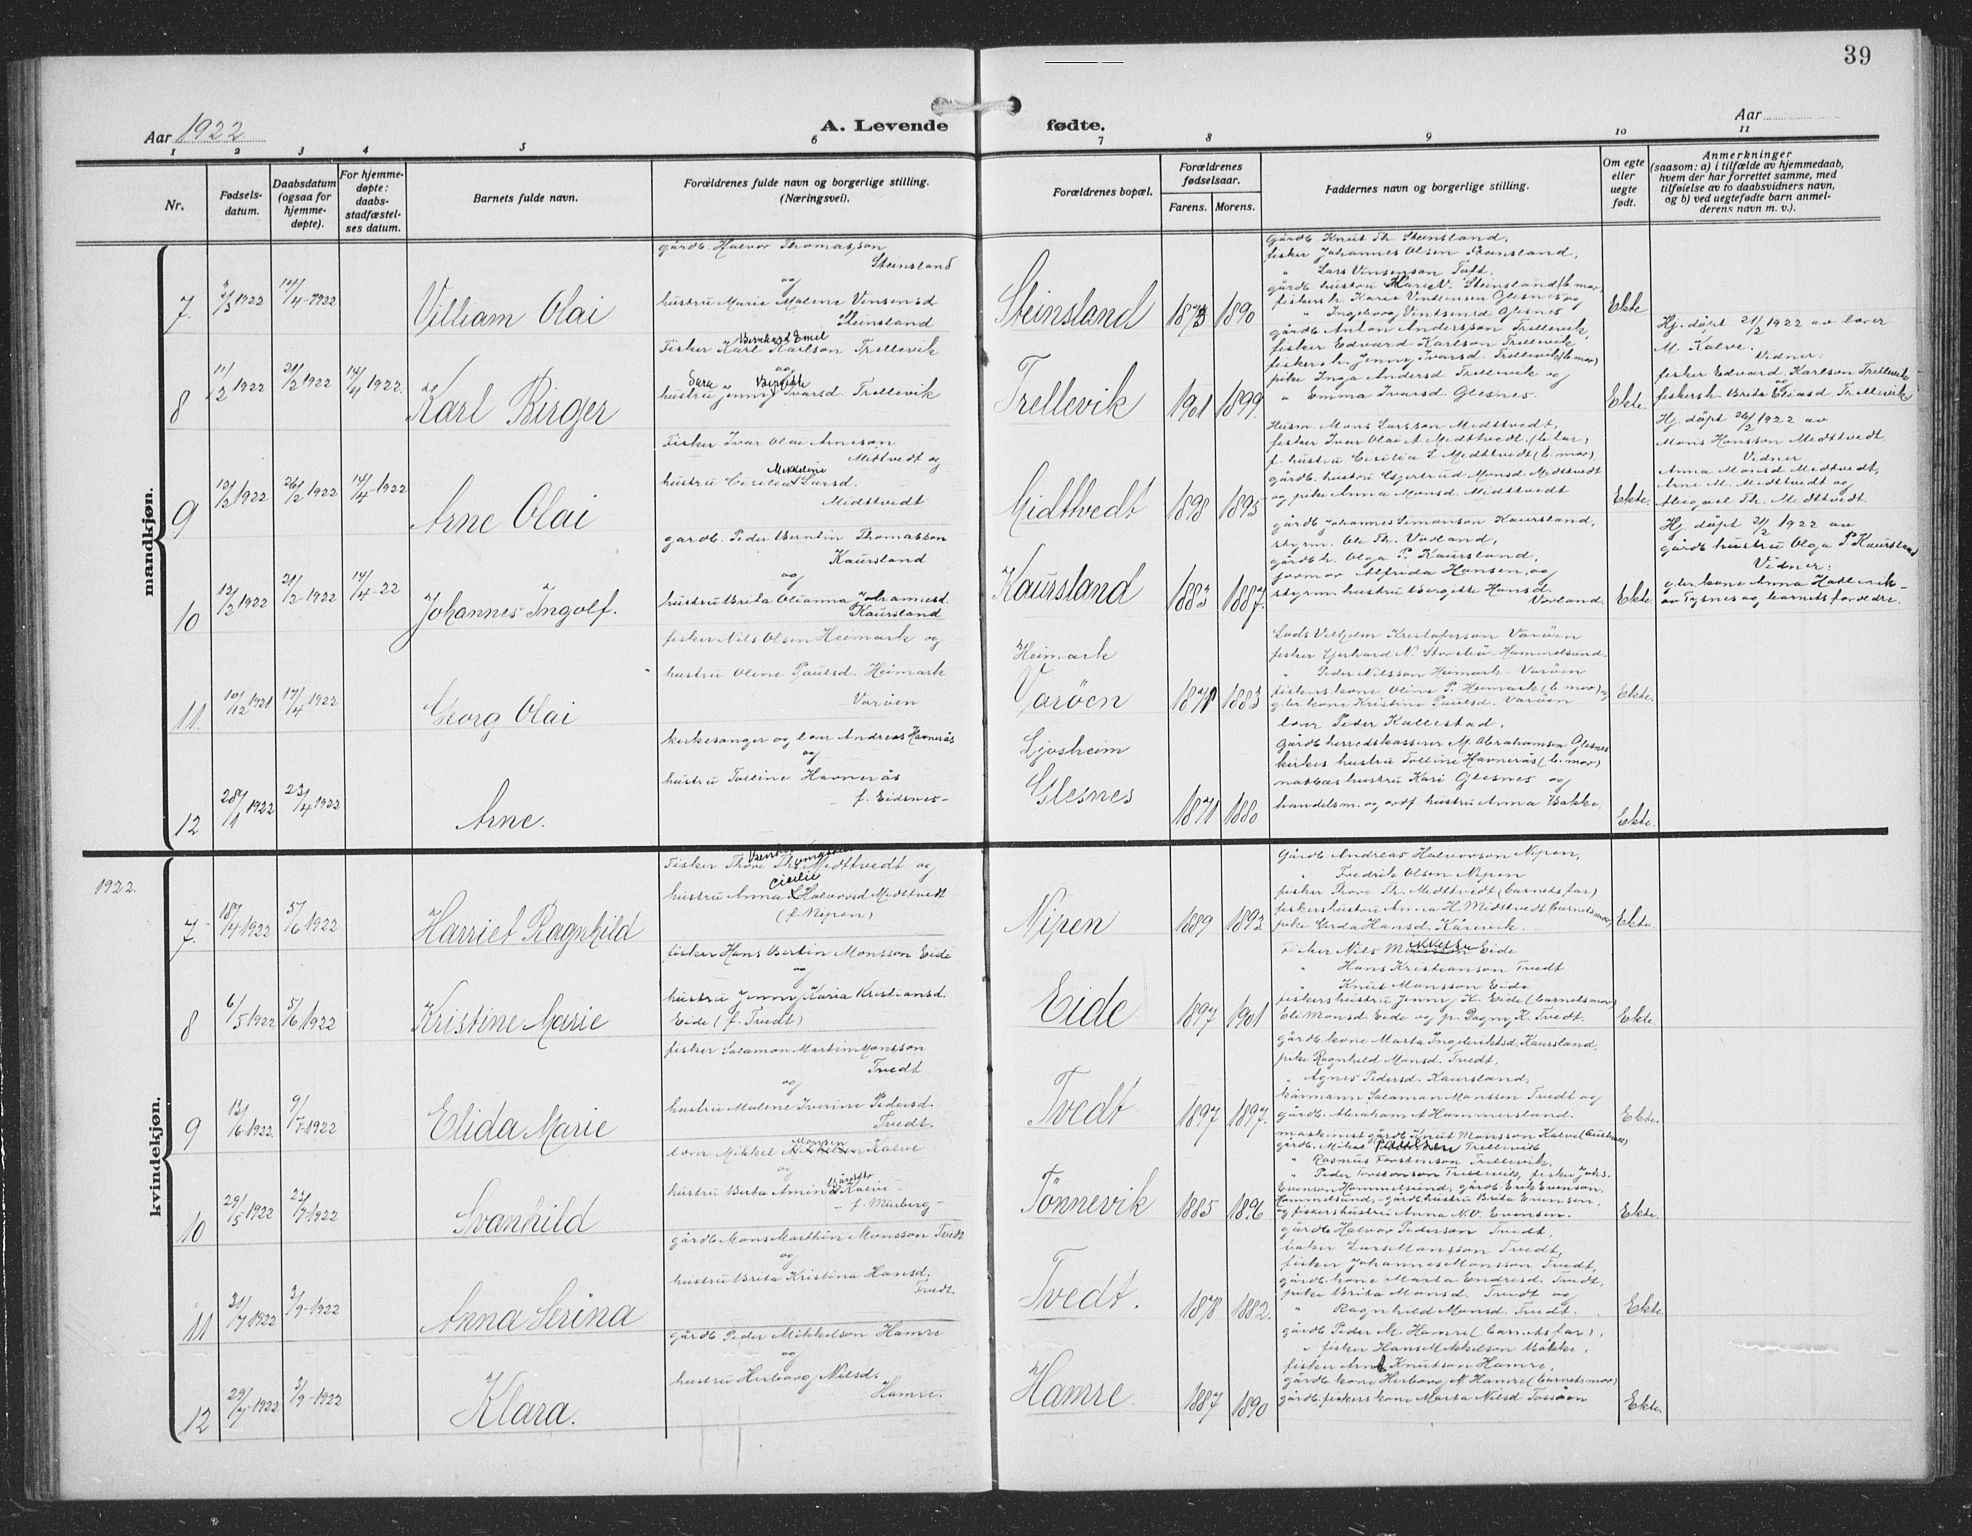 39
Aar 1922
A. Levende
fødte.
Aar
1 2 3 4 5 6 7 8 9 10 11
Nr.
Fødsels-
datum.
Daabsdatum
(ogsaa for
hjemme-
døpte).
For hjemme-
døpte:
daabs-
stadfæstel-
ses datum.
Barnets fulde navn.
Forældrenes fulde navn og borgerlige stilling.
(Næringsvei).
Forældrenes bopæl.
Forældrenes
fødselsaar.
Farens. Morens.
Faddernes navn og borgerlige stilling.
Om egte
eller
uegte
født.
Anmerkninger
(saasom: a) i tilfælde av hjemmedaab,
hvem der har forrettet samme, med
tilføielse av to daabsvidners navn,
og b) ved uegtefødte barn anmel-
derens navn m. v.).
mandkjøn.
gårdb. Halvor Thomasson
Steinsland
og
hustru Marie Malene Vinsensd
Steinsland
7 1922 14/4-1922 Villiam Olai
Steinsland 1873 1890
gårdb. Knut Th. Steinsland,
fisker Johannes Olsen Steinsland,
" Lars Vinsenson Toft.
gårdb hustru Marie V. Steinsland (b. mor)
fiskerh. Karie Vintsensen Glesnes og
" Ingeborg Vintsensd Glesnes
Ekte
Bernhard Emil
Fisker Karl Karlson Trellevik
og
Sara Bergitte
hustru Jenny Ivarsd. Trellevik
8 11/2 1922 21/2 1922 14/4 1922. Karl Birger
Trellevik 1901 1899.
gårdb Anton Anderssen Trellevik,
fisker Edvard Karlson Trellevik
fiskerh. Jenny Ivarsd. Trellevik (b. mor)
pike Inga Andersd Trellevik og
" Emma Ivarsd. Glesnes.
Ekte.
Hj. døpt 21/2 1922 av lærer
M. Kalve.
Vidner:
fisker Edvard Karlson Trellevik
og
fiskersh. Brita Eliasd Trellevik
Fisker Ivar Olai Arneson
Mittvedt og
Mekkeline
hustru Cicilia Larsd.
Midttvedt
9 12/2 1922 26/2 1922 14/4-1922 Arne Olai
Midttvedt 1898 1895
Husm. Mons Larsson Midttvedt,
fisker Ivar Olai A Midttvedt (b. far)
f. hustru Cicilia L Midttvedt (b. mor)
gårdb. hustru Gjertrud Monsd Midttvedt
og pike Anna Monsd. Midttvedt
Ekte.
Hj. døpt 26/2 1922 av
Mons Hansson Midttvedt.
Vidner.
Anna Monsd Midttvedt,
Arne M. Midttvedt og
Abigael Th. Midttvedt.
gardb. Peder Berntin Thomasson
Kaursland
og
hustru Brita Olianna Johannesd.
Kaursland
10 12/2 1922 21/2-1922 14/4-22 Johannes Ingolf.
Kaursland 1883 1887.
gårdb Johannes Simonson Kaursland,
styrm. Ole Th. Vorland,
gårdb h. Olga P. Kaursland,
jormor Alfrida Hansen og
styrm. hustru Bergitte Hansd.
Vorland.
Ekte.
Hj. døpt 21/2 1922 av
gårdb hustru Olga P. Kaursland
Vidner:
gbr. kone Anna Hatlevik
av Tysnes og barnets forældre.
fisker Nils Olsen Heimark og
hustru Oline Paulsd. Heimark
Varöen
11. 10/12 1921. 17/4 1922 Georg Olai
Heimark
Varöen 1878 1883
Lods Vilhelm Kristofferson Varöen
fisker Gerhard N. Storebö-Hummelsund
" Peder Nilsson Heimark - Varöen
fiskers kone Oline P. Heimark (b. mor) og
gbr kone Kristine Paulsd. Varöen
Ekte.
kirkesanger og lærer Andreas Havnerås
og
hustru Tolline Havnerås
f. Eidsnes-
12 28/1 1922 23/4 1922 Arne.
Ljosheim
Glesnes 1871 1880
lærer Peder Kallestad,
Gårdb herredskasserer M. Abrahamsen Glesnes
kirkes hustru Tolline Havnerås (b. mor)
hustru Kari Glesnes og
handelsm. og ordf. hustru Anna Bakke.
Ekte.
kvindekjøn.
1922.
Fisker Thore Th. Midttvedt og
Cicilie
hustru Anna Halvorsd Midttvedt
(f. Nipen)
7. 18/4-1922 5/6 1922 Harriet Ragnhild
Nipen 1889 1893
Gårdb. Andreas Halvorson Nipen,
" Fredrik Olsen Nipen
fisker Thore Th. Midttvedt (barnets far)
fiskershustru Anna H. Midttvedt (barnets mor)
pike Gerda Hansd. Kårevik.
Ekte.
fisker Hans Bertin Monsson Eide
og
hustru Jenny Karia Kristiansd.
Eide (f. Tvedt)
8 6/5 1922 5/6 1922 Kristine Marie
Eide 1897 1901
Fisker Nils Eide
" Hans Kristianson Tvedt
" Knut Monsson Eide
fiskershustru Jenny K. Eide (barnets mor)
Eli Monsd. Eide og p. Dagny K. Tvedt.
Ekte.
fisker Salamon Martin Monsson
Tvedt
og
hustru Malene Iverine Pedersd.
Tvedt.
9 13/6 1922. 9/7-1922 Elida Marie
Tvedt 1897 1897.
gårdb kone Marta Ingebriktsd. Kaursland,
pike Ragnhild Monsd. Tvedt,
" Agnes Pedersd. Kaursland,
kårmann Salamon Monssen Tvedt og
gårdb. Abraham A Hammersland.
Ekte.
Monsen
lærer Mikkel Kalve
og
hustru Berta Amind Kalve
- f. Murberg-
10 29/5 1922 23/7-1922 Svanhild
Tönnevik 1885 1896
maskinist gårdb Knut Monsson Kalve
gårdb. Mikal Paulsen Trellevik
" Rasmus Torstenson Trellevik,
" Peder Torstenson Trellevik, fisker Johs.
Evenson Hammelsund, gårdb. Erik Evenson,
Hammelsund, - gårdb hustru Brita Evensen,
og fiskershustru Anna N. O. Evensen.
Ekte.
gårdb Mons Marthin Monsson Tvedt
og
hustru Brita Kristina Hansd.
Tvedt.
11 31/7 1922 3/9-1922 Anna Serina
Tvedt. 1878 1882.
gårdb Halvor Pederson Tvedt,
baker Lars Monsson Tvedt,
fisker Johannes Monsson Tvedt,
gårdb. kone Marta Endresd. Tvedt,
pike Brita Monsd. Tvedt og
" Ragnhild Monsd. Tvedt.
Ekte.
gårdb Peder Mikkelson Hamre
og
hustru Herborg Nilsd.
Hamre.
12 29/7-1922 3/9-1922 Klara.
Hamre. 1887 1890
gårdb Peder M. Hamre (barnets far),
" fisker Hans Mikkelsen Bakke,
fisker Arne Knutson Hamre,
gårdb kone Herborg N. Hamre (barnets mor)
gårdb. fiskers kone Marta Nilsd Tossöen
Ekte.